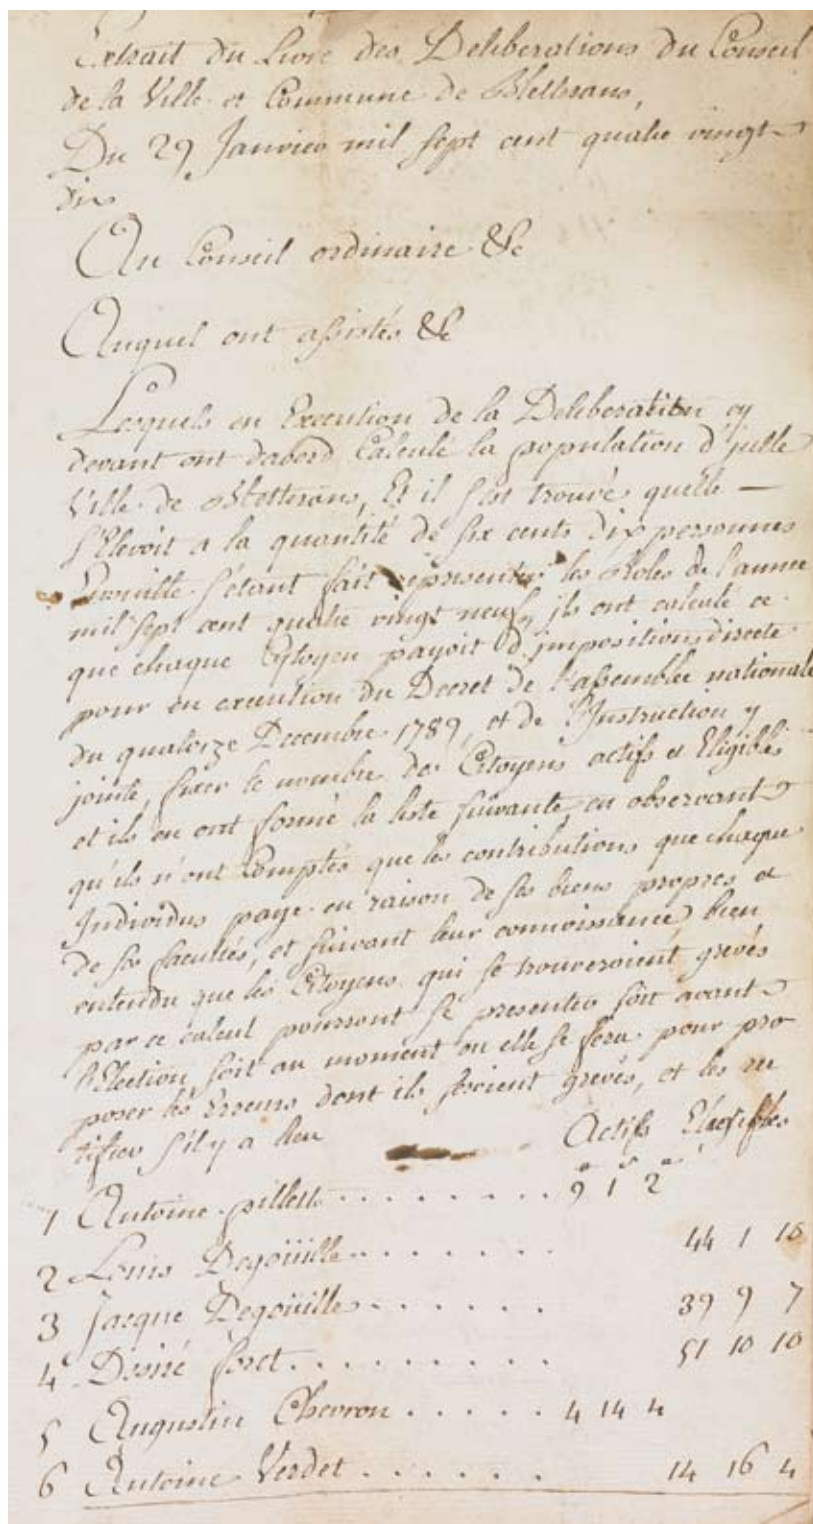 Extrait du Livre des Deliberations du Conseil
de la Ville et Commune de Bletterans,
Du 29 Janvier mil sept cent quatre vingt
dix
Au Conseil ordinaire &c
Auquel ont assistés &c
Lesquels en Execution de la Deliberation cy
devant ont dabord Calculé la population d'jcelle
Ville de Bletterans, Et il s'est trouvé quelle —
s'Elevoit a la quantité de six cents dix personnes
Ensuitte s'étant fait representer les Roles de l'année
mil sept cent quatre vingt neuf, ils ont calculé ce
que chaque Cytoyen payoit d'imposition directe
pour en execution du Decret de l'assemblée nationale
du quatorze Decembre 1789, et de l'Instruction y
jointe, fixer le nombre de Citoyens actifs et Eligibles
et ils en ont formé la liste suivante, en observant
qu'ils n'ont Comptés que les contributions que chaque
Individus paye en raison de ses biens propres et
de ses facultés, et suivant leur connoissance, bien
entendu que les Citoyens qui se trouveroient grevés
par ce calcul pourront se presenter soit avant
l'Election soit au moment ou elle se fera pour pro
poser les Erreurs dont ils seroient grevés, et les rec
tifier s'il y a lieu
Actifs Eligibles
1 Antoine pillett . . . . . . . . 9 1 2
2 Louis Degoüille . . . . . . . 44 1 10
3 Jacque Degoüille . . . . . . 39 9 7
4 Desiré foret . . . . . . . . . 51 10 10
5 Augustin Chevron . . . . . 4 14 4
6 Antoine Verdet . . . . . . 14 16 4